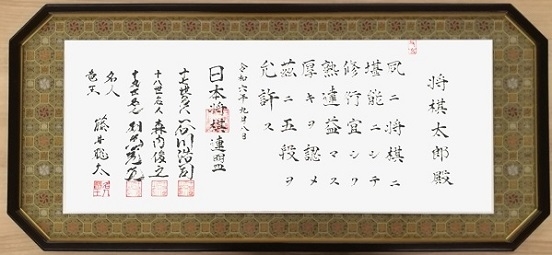 将棋太郎殿
夙ニ将棋ニ
堪能ニシテ
修行宜シク
熟達益マス
厚キヲ認メ
茲ニ五段ヲ
允許ス
令和六年九月八日
日本将棋連盟
十七世名人 谷川浩司
十八世名人 森内俊之
十九世名人 羽生善治
名人
竜王 藤井聡太